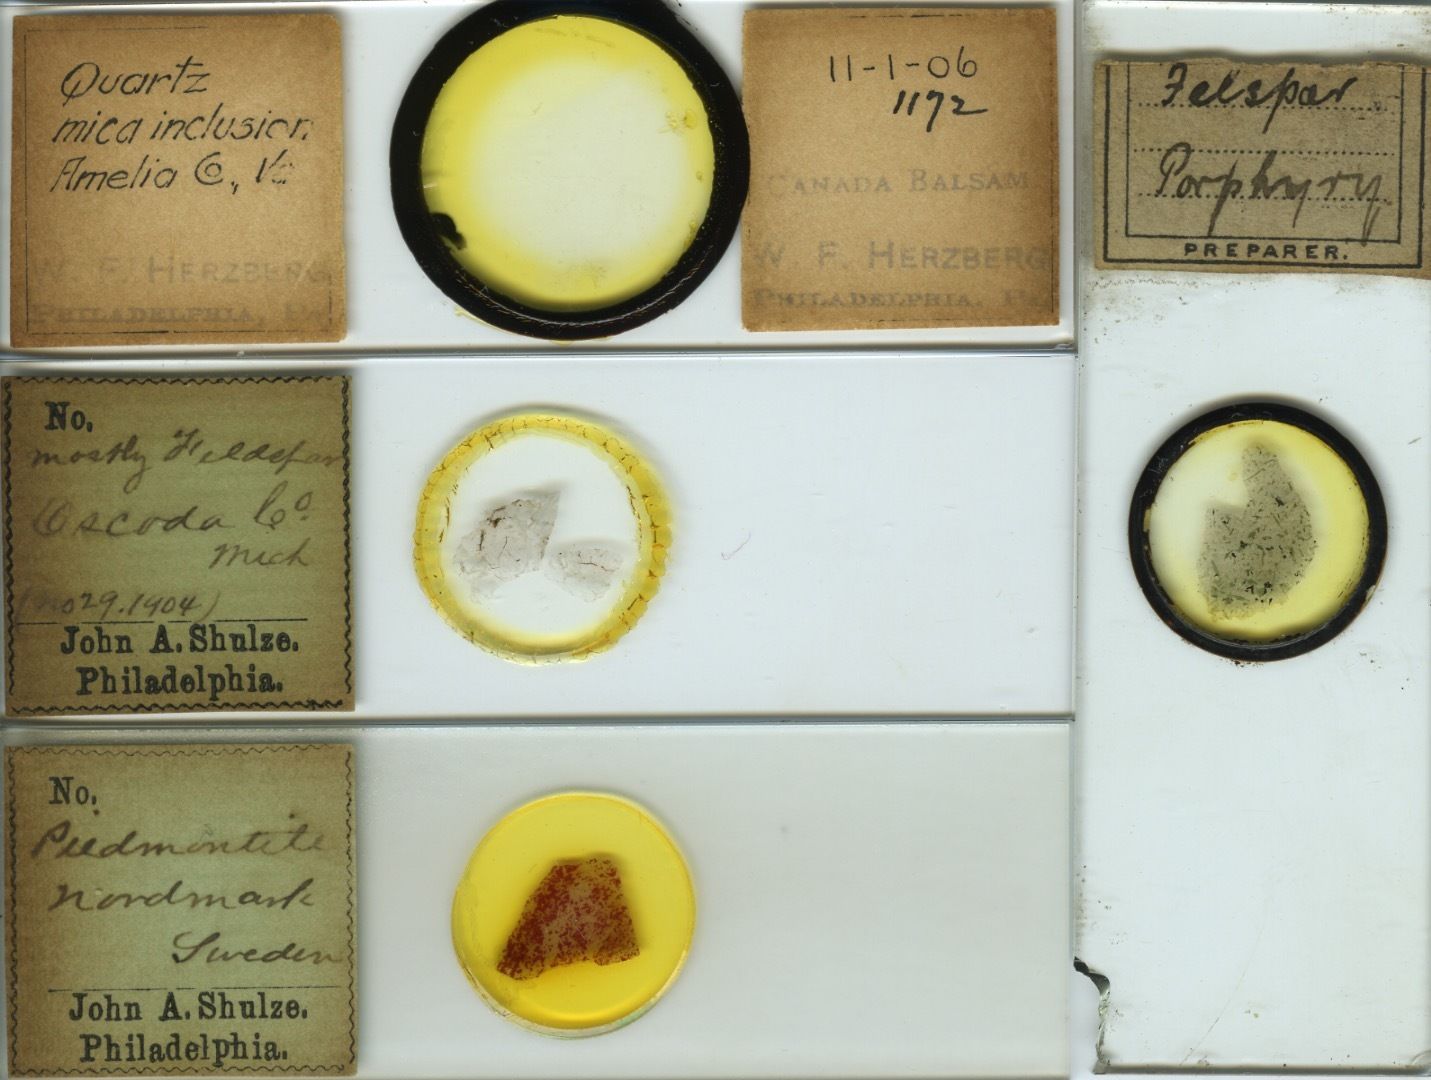 Quartz
mica inclusion
Amelia Co., Va
W. F. HERZBERG
PHILADELPHIA, Pa.
11-1-06
1172
CANADA BALSAM
W. F. HERZBERG
PHILADELPHIA, Pa.
Felspar
Porphyry
PREPARER.
No.
mostly Feldspar
Oscoda Co.
Mich
(No 29.1904)
John A. Shulze.
Philadelphia.
No.
Piedmontite
Nordmark
Sweden
John A. Shulze.
Philadelphia.